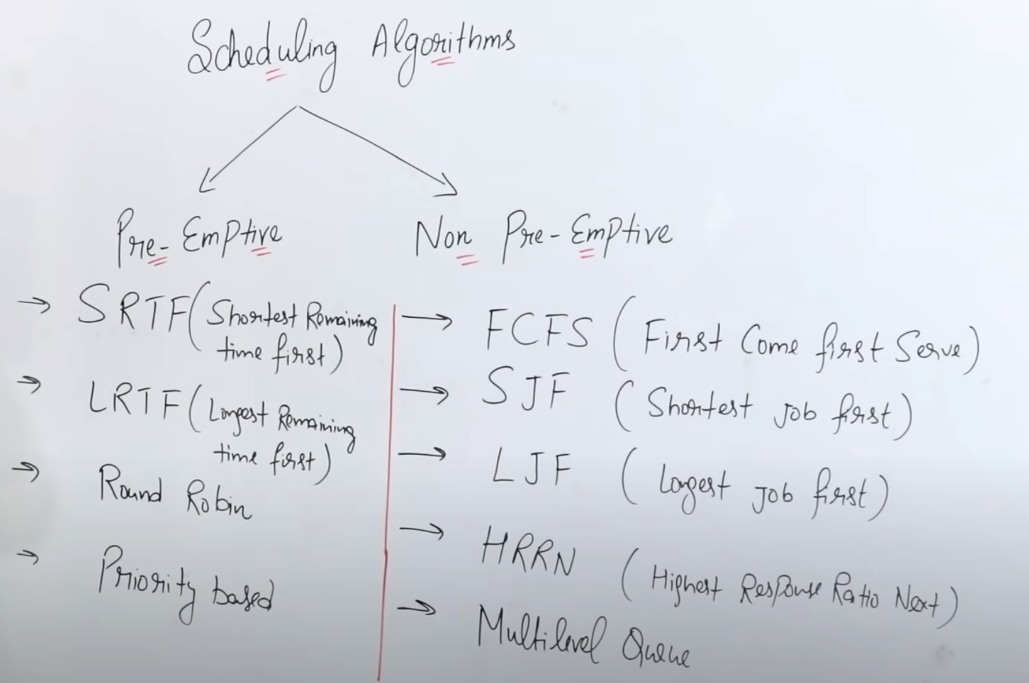 Scheduling Algorithms
Pre-Emptive
Non Pre-Emptive
→ SRTF (Shortest Remaining
time first)
→ LRTF (Longest Remaining
time first)
→ Round Robin
→ Priority based
→ FCFS (First Come first Serve)
→ SJF (Shortest Job first)
→ LJF (Longest Job first)
→ HRRN (Highest Response Ratio Next)
→ Multilevel Queue